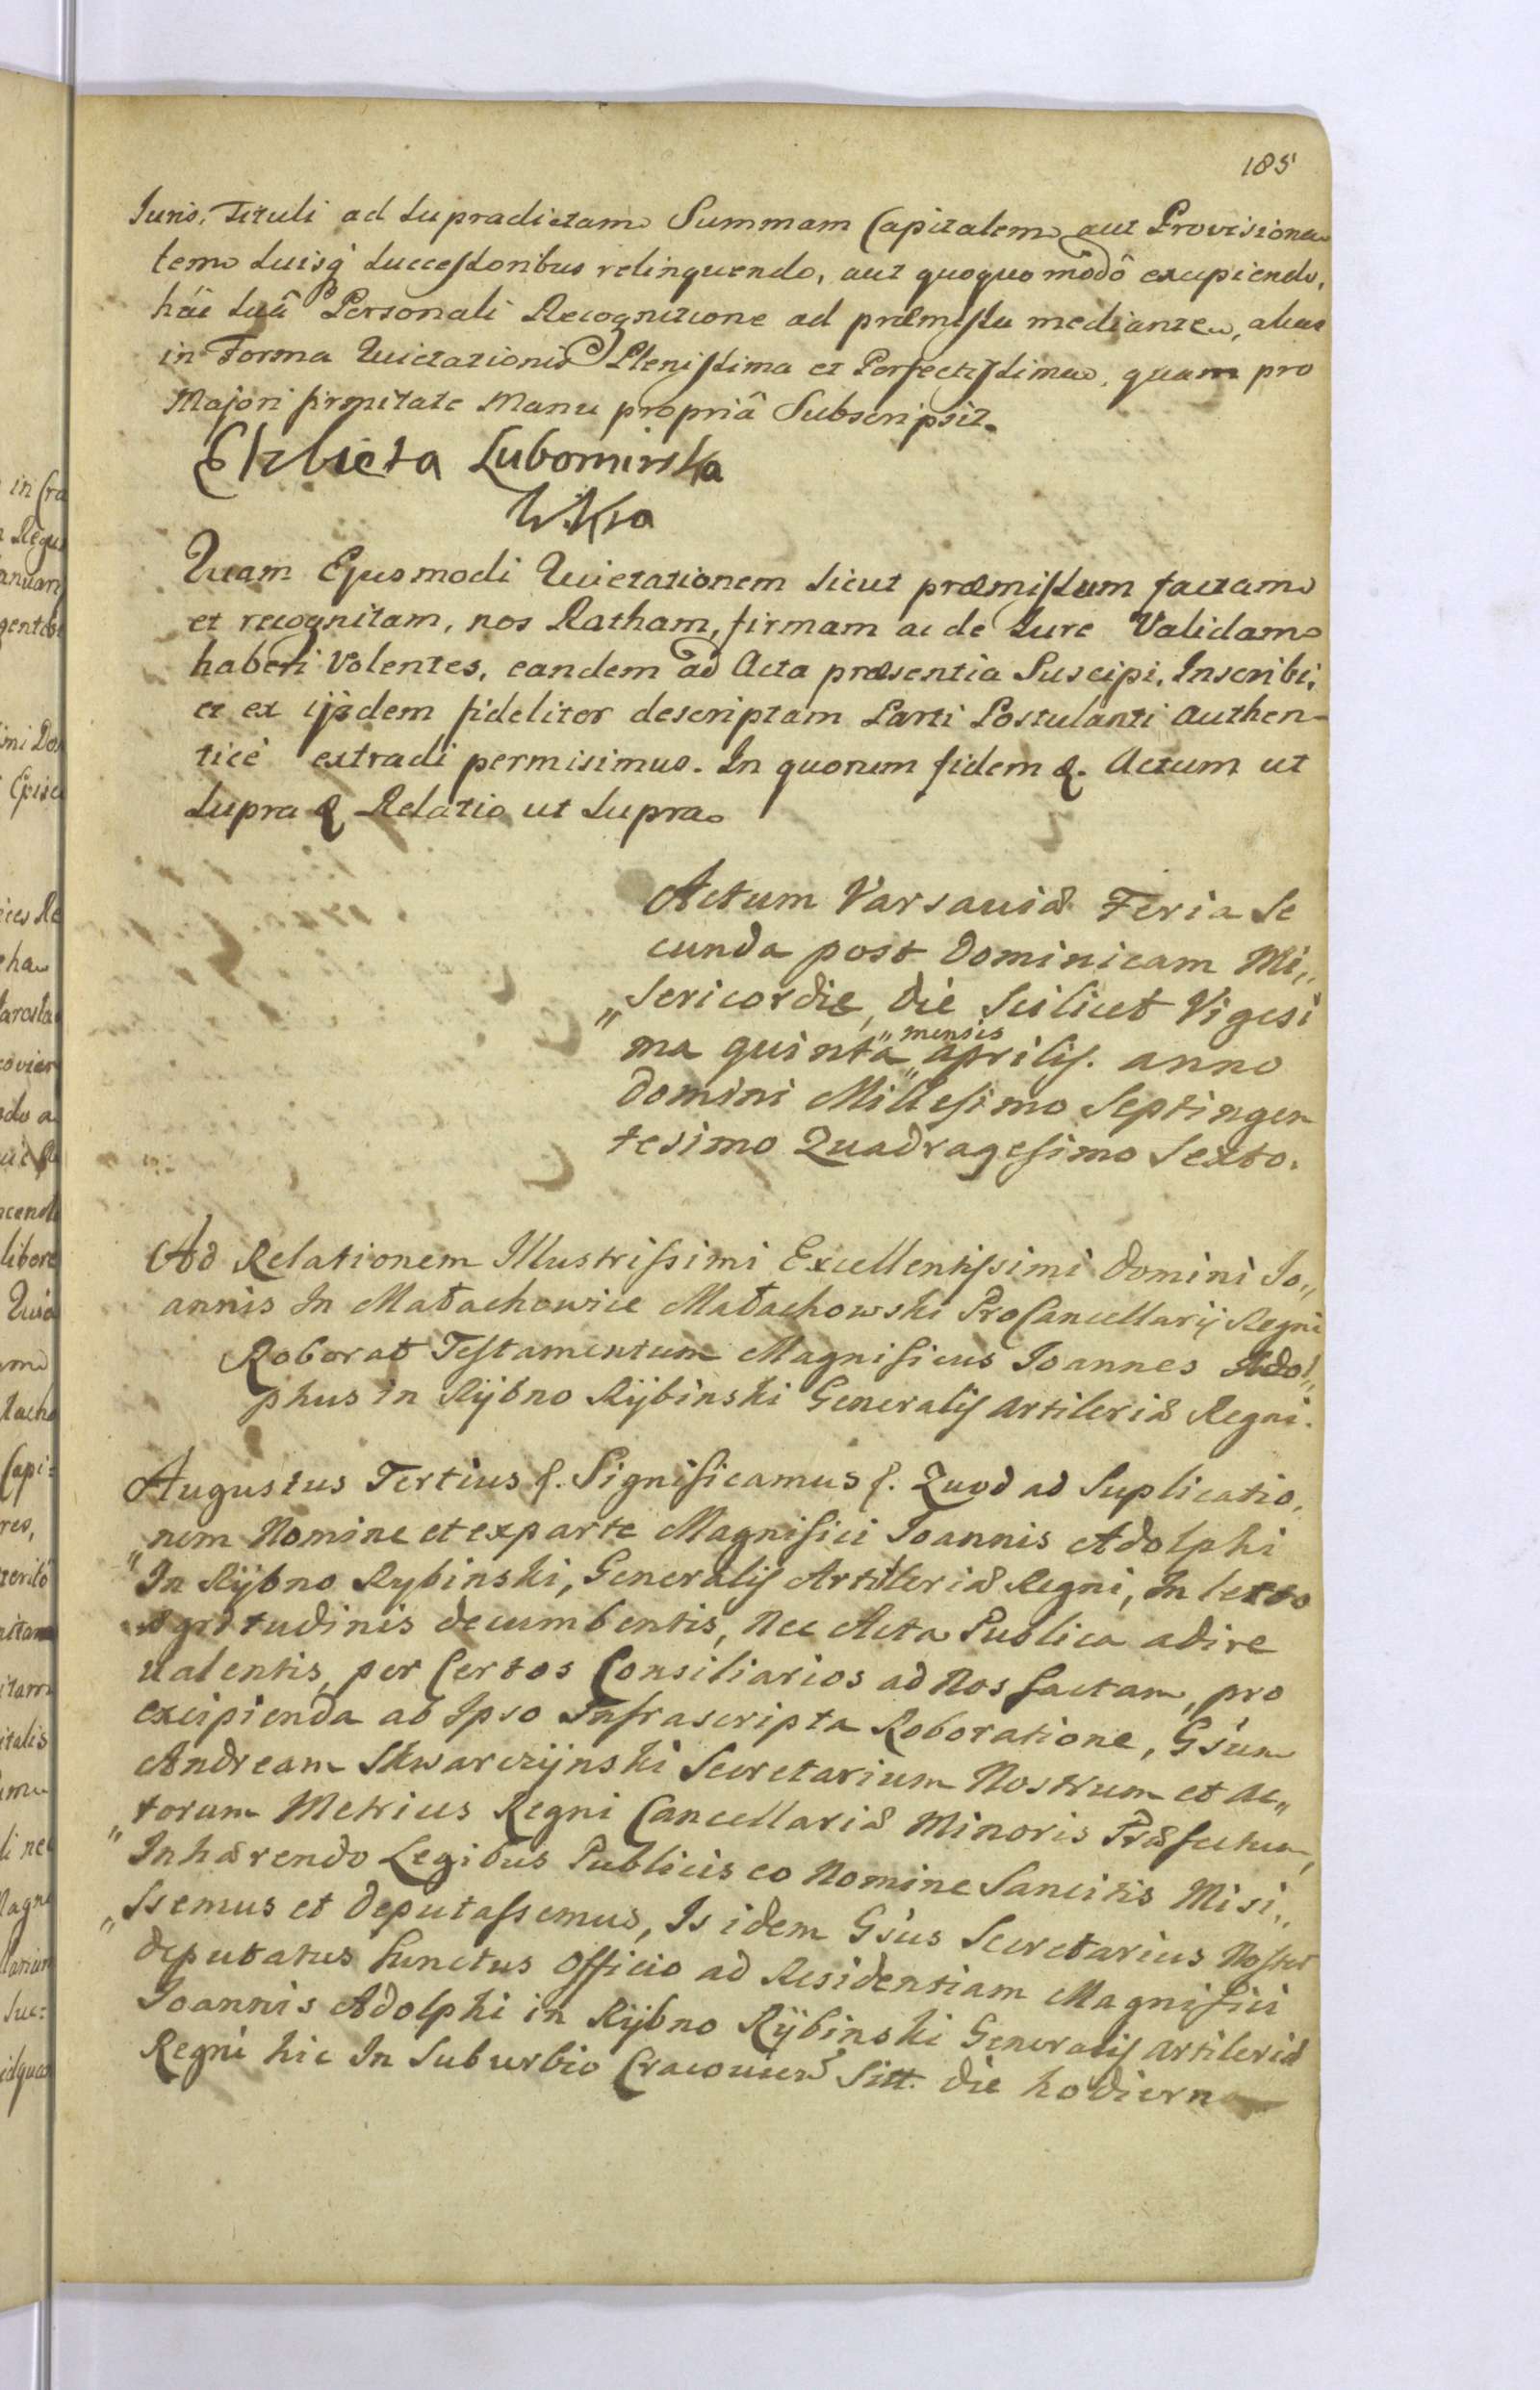 185
Juris, Tituli ad Supradictam Summam Capitalem aut Provisiona
lem Suisq Successoribus relinquendo, aut quoquo modô excipiendo,
hâc Suâ Personali Recognitione ad præmissa mediante, alias
in Forma Quietationis Plenissima et Perfectissima, quam pro
Majori firmitate Manu propriâ Subscripsit.
Elzbieta Lubomirska
Quam Ejusmodi Quietationem Sicut præmissum factam
et recognitam, nos Ratham, firmam ac de Jure Validam
haberi Volentes, eandem ad Acta præsentia Suscipi, Inscribi,
et ex ijsdem fideliter descriptam Parti Postulanti Authen-
ticè extradi permisimus. In quorum fidem &. Actum ut
Supra & Relatio ut Supra.
Actum Varsaviæ Feria Se
cunda post Dominicam Mi„
„sericordie, die Scilicet Vigesi
ma quinta „mensis„ aprilis. anno
Domini Millesimo Septingen
tesimo Quadragesimo Sexto.
Ad Relationem Illustrissimi Excellentissimi Domini Jo„
annis In Małachowice Małachowski ProCancellarij Regni
Roborat Testamentum Magnificus Joannes Adol„
phus in Rÿbno Rÿbinski Generalis artileriæ Regni.
Augustus Tertius &. Significamus &. Quod ad Suplicatio„
„nem Nomine et ex parte Magnifici Joannis Adolphi
In Rÿbno Rybinski, Generalis Artileriæ Regni, In lecto
ægritudinis decumbentis, nec Acta Publica adire
valentis, per Certos Consiliarios ad Nos factam, pro
excipienda ab Ipso Infrascripta Roboratione, Gsum
Andream Skwarczÿnski Secretarium Nostrum et Ac„
„torum Metrices Regni Cancellariæ Minoris Præfectum,
Inhærendo Legibus Publicis eo Nomine Sancitis Misi„
„ssemus et deputassemus, Is idem Gsus Secretarius Noster
deputatus functus Officio ad Residentiam Magnifici
Joannis Adolphi in Rÿbno Rÿbinski Generalis artileriæ
Regni hic In Suburbio Cracoviens Sitt. die hodierna